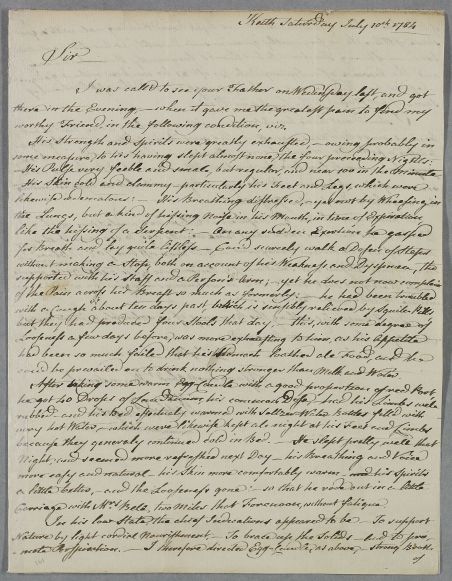 Keith Saturday July 10th 1784
Sir
I was called to see your Father on Wednesday last, and got
there in the Evening, — when it gave me the greatest pain to find my
worthy Friend, in the following condition, viz.
His Strength and Spirits were greatly exhausted, — owing probably in
some measure, to his having slept almost none, the four preceeding Nights:
His Pulse very feeble and small, but regular, and near 100 in the Minute
His Skin cold and clammy — particularly his Feet and Legs, which were
likewise œdematous: — His Breathing distressed, — yet not by Wheezing in
the Lungs, but a kind of hissing Noise in his Mouth, in time of Expiration,
like the hissing of a Serpent: — On any sudden Exertion he gasped
for Breath and lay quite listless — Cou'd scarcely walk a Dozen of Steps
without making a Stop, both on account of his Weakness and Dyspnœa, tho
supported with his Staff and a Person's Arm; — yet he does not now complain
of the Pain across his Breast so much as formerly. — he had been troubled
with a Cough about ten days past, which is sensibly relieved by Squill Pills
but they had produced four Stools that day, — this, with some degree of
Looseness a few days before, was more exhausting to him, as his Appetite
had been so much failed that his Stomach loathed all Food, and he
cou'd be prevailed on to drink nothing stronger than Milk and Water.
After taking some warm Egg-Caudle with a good proportion of red Port
he got 40 Drops of Laudanum, his common Dose, had his Limbs well
rubbed and his bed effectively warmed with Seltzer Water Bottles filled with
very hot Water, — which were likewise kept all night at his Feet and Limbs
because they generally continued cold in Bed. — He slept pretty well that
Night, and seemed more refreshed next Day — his Breathing and Voice
more easy and natural — his Skin more comfortably warm — and his Spirits
a little better, — and the Looseness gone — so that he rode out in a little
Carriage with Mrs Skele, two Miles that Forenoon, without fatigue.
In his low State the chief Indications appeared to be — To support
Nature by light cordial Nourishment — To brace up the Solids — and to pro-
mote Perspiration. — I therefore directed Egg-Caudle, as above, strong Broth
of